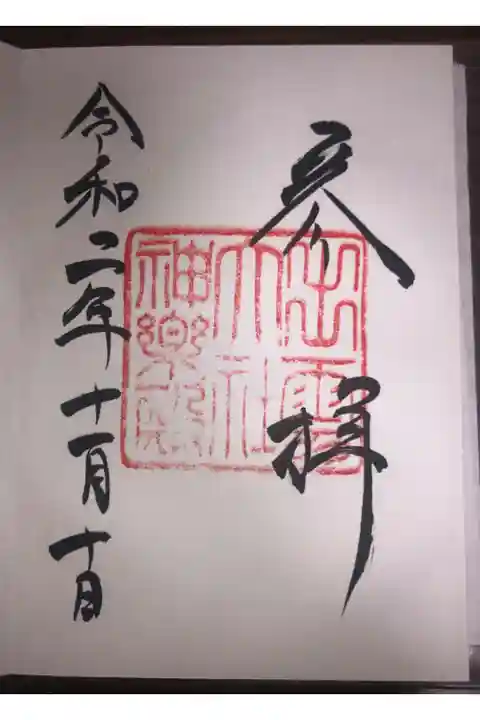 参拝
出雲
大社
神樂殿
令和二年十一月十日